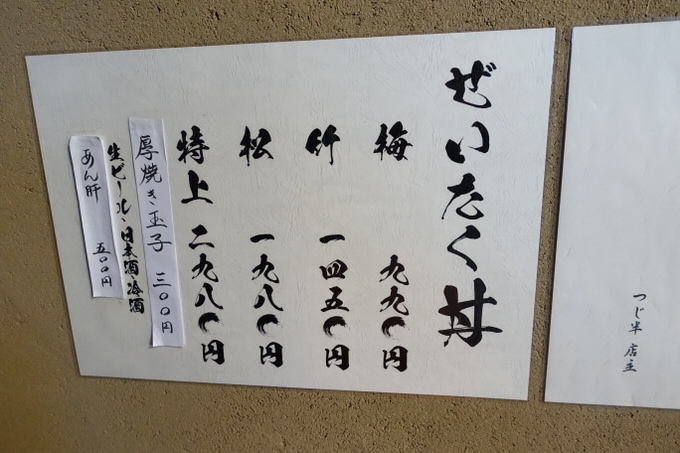 つじ半 店主
ぜいたく丼
梅 九九〇円
竹 一四五〇円
松 一九八〇円
特上 二九八〇円
厚焼き玉子 三〇〇円
生ビール、日本酒、冷酒
あん肝 五〇〇円